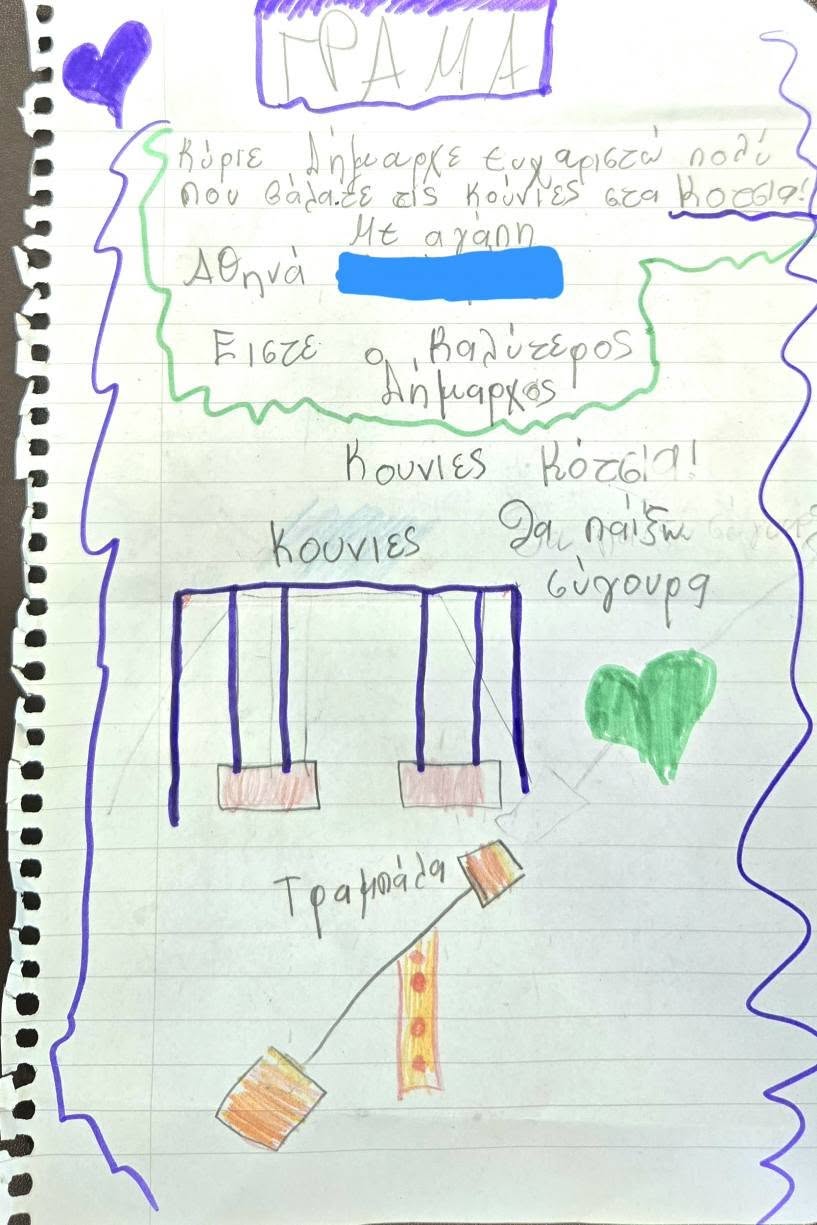 ΓΡΑΜΑ
Κύριε Δήμαρχε ευχαριστώ πολύ
που βάλατε τις κούνιες στα Κοτσια!
Με αγάπη
Αθηνά
Είστε ο καλύτερος
Δήμαρχος
Κουνιες Κότσια!
Θα παίξω
σύγουρα
Κουνιες
Τραμπάλα